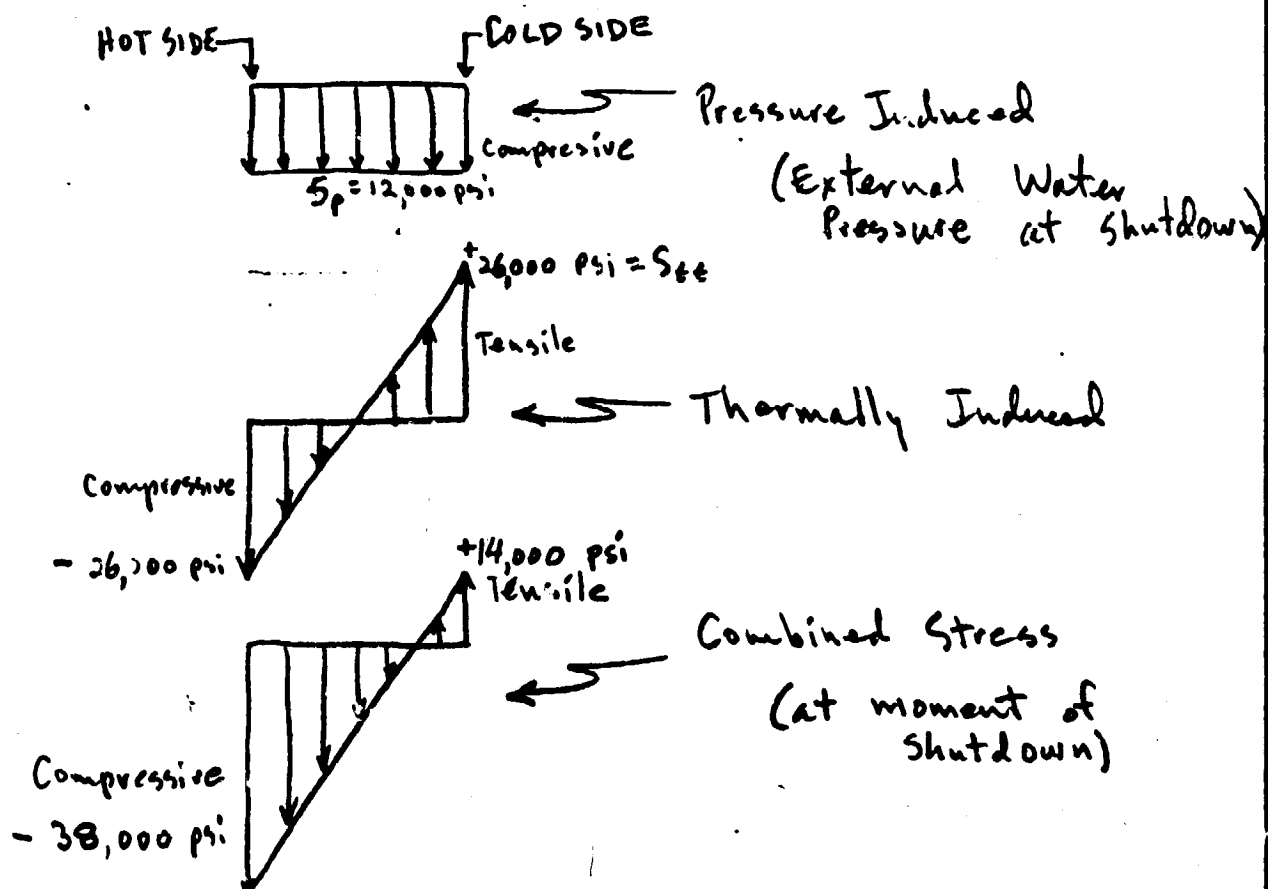 HOT SIDE
COLD SIDE
Pressure Induced
Compresive
(External Water
Pressure at shutdown)
Sp = 12,000 psi
+26,000 psi = Stt
Tensile
Thermally Induced
Compressive
psi
+14,000 psi
Tensile
Combined Stress
(at moment of
shutdown)
Compressive
- 38,000 psi